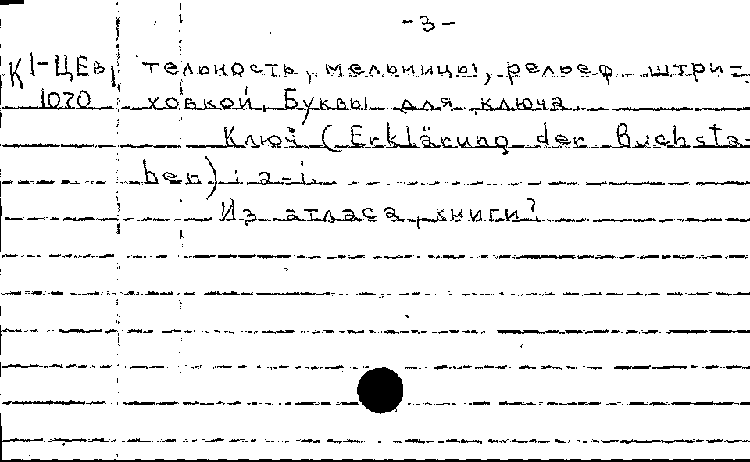 -3-
К 1-ЦЕв, тельность, мельницы, рельеф штри-
1070 ховкой. Буквы для ключа.
Ключ (Erklärung der Buchsta-
ben): a-i.
Из атласа, книги?